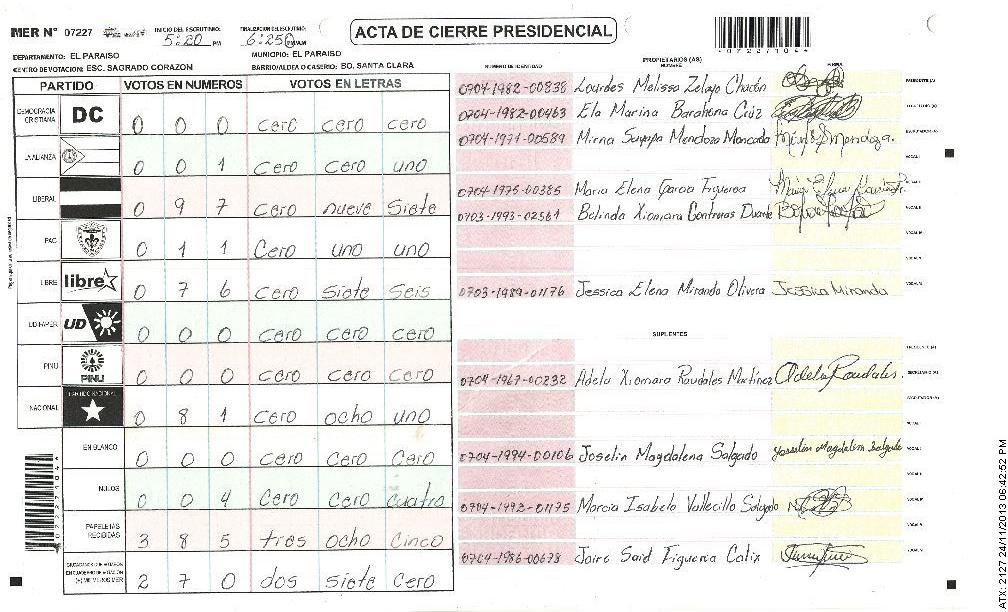 MER N° 07227 INICIO DEL ESCRUTINIO: 5:20 PM FINALIZACION DEL ESCRUTINIO: 6:25 PM/AM
ACTA DE CIERRE PRESIDENCIAL
072271044
DEPARTAMENTO: EL PARAISO MUNICIPIO: EL PARAISO
CENTRO DE VOTACION: ESC. SAGRADO CORAZON BARRIO/ALDEA O CASERIO: BO. SANTA CLARA
PARTIDO VOTOS EN NUMEROS VOTOS EN LETRAS
DEMOCRACIA CRISTIANA DC 0 0 0 cero cero cero
LA ALIANZA 0 0 1 Cero Cero uno
LIBERAL 0 9 7 Cero nueve Siete
PAC 0 1 1 Cero uno uno
LIBRE libre 0 7 6 Cero Siete Seis
UD/FAPER UD 0 0 0 cero cero cero
PINU PINU 0 0 0 cero cero cero
NACIONAL PARTIDO NACIONAL 0 8 1 Cero ocho uno
EN BLANCO 0 0 0 Cero Cero Cero
NULOS 0 0 4 Cero Cero cuatro
PAPELETAS RECIBIDAS 3 8 5 tres ocho Cinco
2 7 0 dos siete Cero
NUMERO DE IDENTIDAD PROPIETARIOS (AS) NOMBRE FIRMA
0704-1982-00838 Lourdes Melissa Zelaya Chacón PRESIDENTE (A)
0704-1982-00463 Ela Marina Barahona Cruz SECRETARIO (A)
0704-1971-00589 Mirna Suyapa Mendoza Moncada ESCRUTADOR (A)
VOCAL I
0704-1975-00385 Maria Elena Garcia Figueroa VOCAL II
0703-1993-02561 Belinda Xiomara Contreras Duarte VOCAL III
VOCAL IV
VOCAL V
0703-1989-01176 Jessica Elena Miranda Olivera Jessica Miranda VOCAL VI
SUPLENTES
PRESIDENTE (A)
0704-1967-00232 Adela Xiomara Raudales Martínez Adela Raudales. SECRETARIO (A)
ESCRUTADOR (A)
VOCAL I
0704-1994-00106 Joselin Magdalena Salgado Josselin Magdalena Salgado VOCAL II
VOCAL III
0704-1992-01175 Marcia Isabela Vallecillo Salgado VOCAL IV
VOCAL V
0704-1986-00678 Jairo Said Figueroa Calix VOCAL VI
ATX: 2127 24/11/2013 06:42:52 PM